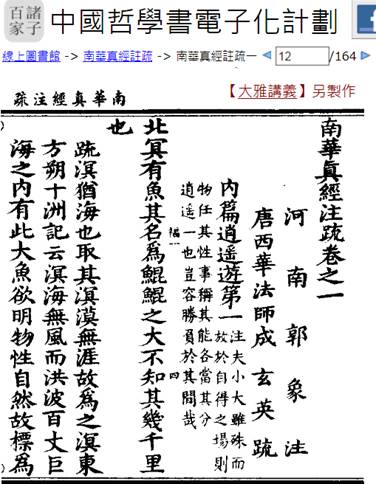 諸子百家
中國哲學書電子化計劃
線上圖書館 -> 南華真經註疏 -> 南華真經註疏一 12 /164
南華真經注疏
【大雅講義】另製作
南華眞經注疏卷之一
河南郭象注
唐西華法師成玄英疏
內篇逍遙遊第一
注夫小大雖殊而
放於自得之場則
物任其性事稱其能各當其分
逍遥一也豈容勝負於其間哉
北冥有魚其名為鯤鯤之大不知其幾千里
也
疏溟猶海也取其溟漠無涯故為之溟東
方朔十洲記云溟海無風而洪波百丈巨
海之內有此大魚欲明物性自然故標為